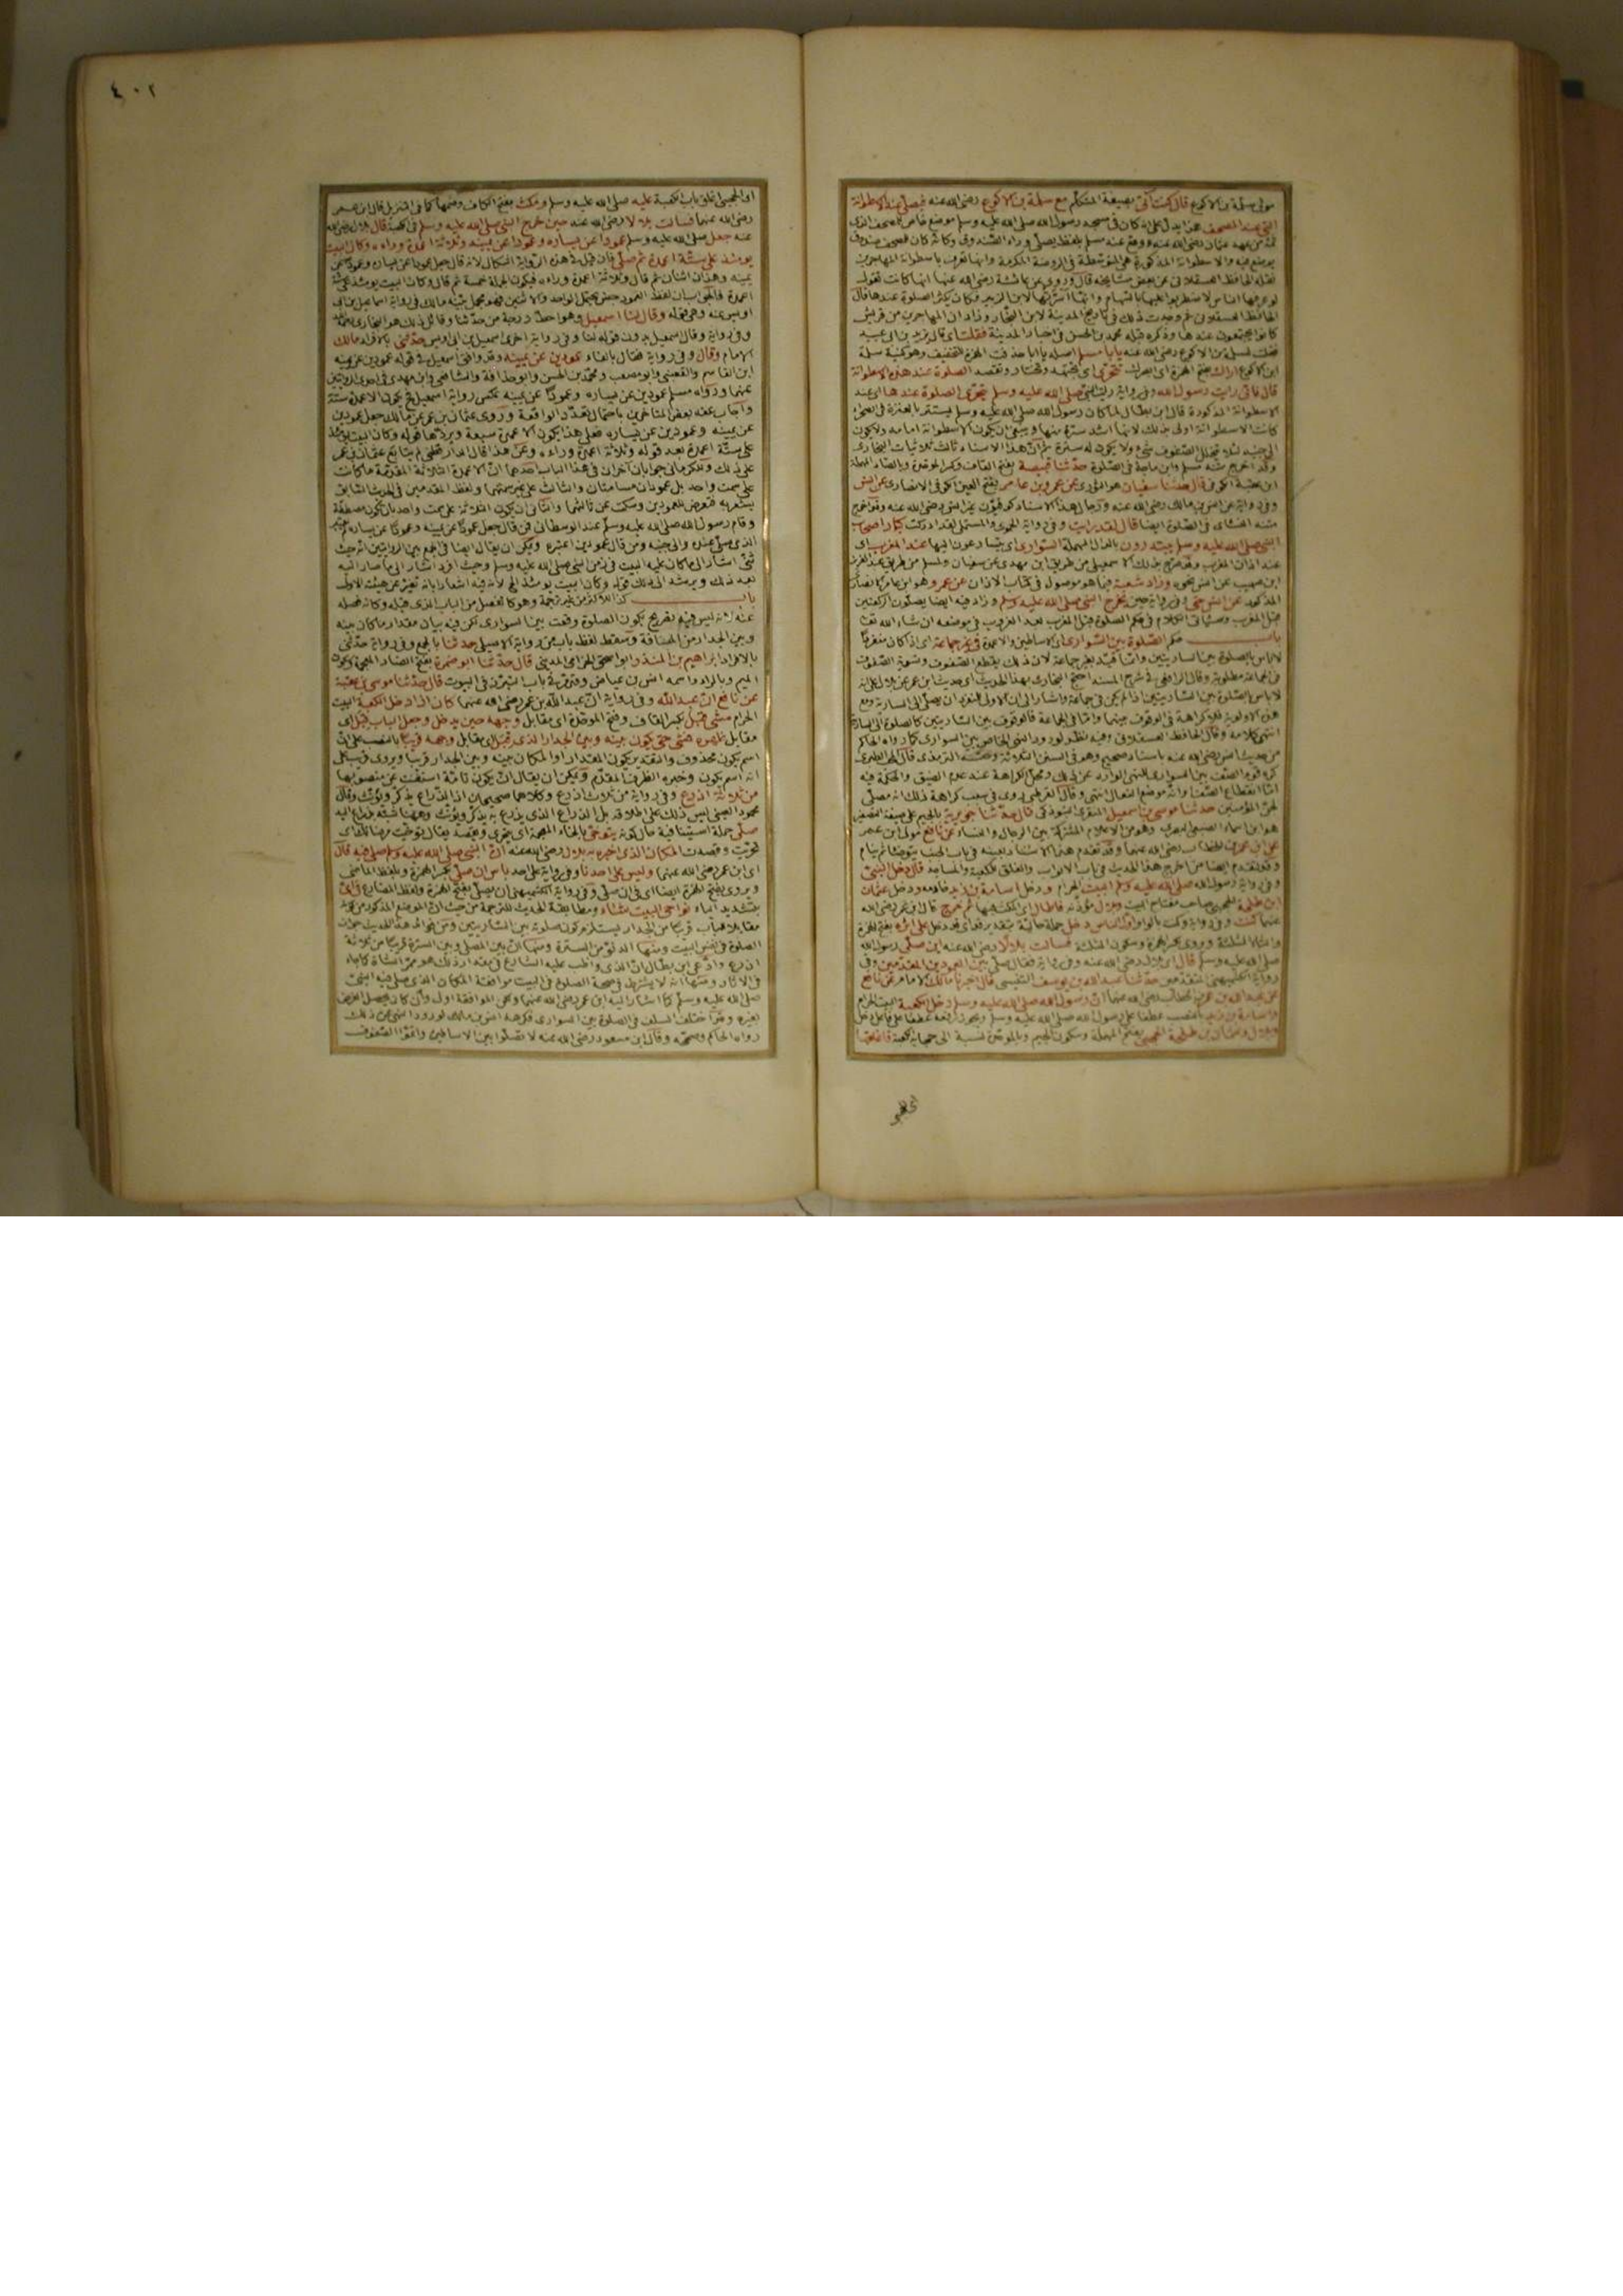 مولى سلمة بن الاكوع قال كنت آتي بصيغة المتكلم مع سلمة بن الاكوع رضي الله عنه فيصلي عند الاسطوانة
التي عند المصحف هذا يدل على انه كان في مسجد رسول الله صلى الله عليه وسلم موضع خاص للمصحف الذي
ثمة من عهد عثمان رضي الله عنه ووقع عند مسلم بلفظ يصلي وراء الصندوق وكانه كان للمصحف صندوق
يوضع فيه والاسطوانة المذكورة هي المتوسطة في الروضة المكرمة وانها تعرف باسطوانة المهاجرين
نقله الحافظ العسقلاني عن بعض مشايخه قال وروي عن عائشة رضي الله عنها انها كانت تقول
لو عرفها الناس لاضطربوا عليها بالسهام وانها اسرتها لابن الزبير فكان يكثر الصلوة عندها قال
الحافظ العسقلاني ثم وجدت ذلك في تاريخ المدينة لابن النجار وزاد ان المهاجرين من قريش
كانوا يجتمعون عندها وذكره قبله محمد بن الحسن في اخبار المدينة فقلت اي قال يزيد بن ابي عبيد
فقلت لسلمة بن الاكوع رضي الله عنه يا با مسلم اصله يا ابا حذفت الهمزة للتخفيف وهو كنية سلمة
ابن الاكوع اراك بفتح الهمزة اي ابصرك تتحرى اي تجتهد وتختار وتقصد الصلوة عند هذه الاسطوانة
قال فاني رايت رسول الله وفي رواية رايت النبي صلى الله عليه وسلم يتحرى الصلوة عندها اي عند
الاسطوانة المذكورة قال ابن بطال لما كان رسول الله صلى الله عليه وسلم يستتر بالعنزة في الصحراء
كانت الاسطوانة اولى بذلك لانها اشد سترة منها وينبغي ان يكون الاسطوانة امامه ولا يكون
الى جنبه لئلا يتخلل الصفوف شيء ولا يكون له سترة ثم ان هذا الاسناد ثالث ثلاثيات البخاري
وقد اخرج متنه مسلم وابن ماجة في الصلوة حدثنا قبيصة بفتح القاف وكسر الموحدة وبالصاد المهملة
ابن عقبة الكوفي قال حدثنا سفيان هو الثوري عن عمرو بن عامر بفتح العين الكوفي الانصاري عن انس
وفي رواية عن انس بن مالك رضي الله عنه ورجال هذا الاسناد كوفيون غير انس رضي الله عنه وقد اخرج
متنه النسائي في الصلوة ايضا قال لقد رايت وفي رواية الحموي والمستملي لقد ادركت كبار اصحاب
النبي صلى الله عليه وسلم يبتدرون بالدال المهملة السواري اي يتسارعون اليها عند المغرب اي
عند اذان المغرب وقد صرح بذلك الاسمعيلي من طريق ابن مهدي عن سفيان ولمسلم من طريق عبد العزيز
ابن صهيب عن انس نحوه وزاد شعبة فيما هو موصول في كتاب الاذان عن عمرو هو ابن عامر الانصاري
المذكور عن انس حتى وفي رواية حين يخرج النبي صلى الله عليه وسلم وزاد فيه ايضا يصلون الركعتين
قبل المغرب وسيأتي الكلام في حكم الصلوة قبل المغرب بعد الغروب في موضعه ان شاء الله تعالى
باب حكم الصلوة بين السواري اي الاساطين والاعمدة في غير جماعة اي اذا كان منفردا
لا باس بالصلوة بين الساريتين وانما قيد بغير جماعة لان ذلك يقطع الصفوف وتسوية الصفوف
في الجماعة مطلوبة وقال الرافعي في شرح المسند احتج البخاري بهذا الحديث اي حديث ابن عمر عن بلال على انه
لا باس بالصلوة بين الساريتين اذا لم يكن في جماعة واشار الى ان الاولى للمنفرد ان يصلي الى السارية ومع
هذه الاولوية فلا كراهة في الوقوف بينهما واما في الجماعة فالوقوف بين الساريتين كالصلوة الى السارية
انتهى كلامه وقال الحافظ العسقلاني وفيه نظر لورود النهي الخاص بين السواري كما رواه الحاكم
من حديث انس رضي الله عنه باسناد صحيح وهو في السنن الثلاثة وحسنه الترمذي قال المحب الطبري
كره قوم الصف بين السواري للنهي الوارد عن ذلك ومحل الكراهة عند عدم الضيق والحكمة فيه
اما انقطاع الصف او انه موضع النعال انتهى وقال القرطبي روي في سبب كراهة ذلك انه مصلى
الجن المؤمنين حدثنا موسى بن اسمعيل المنقري التبوذكي قال حدثنا جويرية بالجيم على صيغة التصغير
هو ابن اسماء الضبعي البصري وهو من الاعلام المشتركة بين الرجال والنساء عن نافع مولى ابن عمر
عن ابن عمر بن الخطاب رضي الله عنهما وقد تقدم هذا الاسناد بعينه في باب الجنب يتوضأ ثم ينام
وقد تقدم ايضا من اخرج هذا الحديث في باب الابواب والغلق للكعبة والمساجد قال دخل النبي
وفي رواية رسول الله صلى الله عليه وسلم البيت الحرام ودخل اسامة بن زيد خادمه ودخل عثمان
ابن طلحة الحجبي صاحب مفتاح البيت وبلال مؤذنه فاطال اي المكث فيها ثم خرج قال ابن عمر رضي الله
عنهما كنت وفي رواية وكنت بالواو اول الناس دخل جملة حالية بتقدير قد اي قد دخل على اثره بفتح الهمزة
والثاء المثلثة ويروى بكسر الهمزة وسكون المثلثة فسالت بلالا رضي الله عنه اين صلى رسول الله
صلى الله عليه وسلم قال اي بلال رضي الله عنه وفي رواية فقال صلى بين العمودين المقدمين وفي
رواية الكشميهني المتقدمين حدثنا عبد الله بن يوسف التنيسي قال اخبرنا مالك الامام عن نافع
عن عبد الله بن عمر بن الخطاب رضي الله عنهما ان رسول الله صلى الله عليه وسلم دخل الكعبة البيت الحرام
واسامة بن زيد بالنصب عطفا على رسول الله صلى الله عليه وسلم ويجوز رفعه عطفا على فاعل دخل
وبلال وعثمان بن طلحة الحجبي بفتح المهملة وسكون الجيم وبالموحدة نسبة الى حجابة الكعبة فاغلقها
اي الحجبي
٤٠٢
اي الحجبي اغلق باب الكعبة عليه صلى الله عليه وسلم ومكث بفتح الكاف وضمها كما في التنزيل قال ابن عمر
رضي الله عنهما فسالت بلالا رضي الله عنه حين خرج النبي صلى الله عليه وسلم في الكعبة قال بلال رضي الله
عنه جعل صلى الله عليه وسلم عمودا عن يساره وعمودا عن يمينه وثلاثة اعمدة وراءه وكان البيت
يومئذ على ستة اعمدة ثم صلى فان قيل في هذه الرواية اشكال لانه قال جعل عمودا عن يساره وعمودا عن
يمينه وهذان اثنان ثم قال وثلاثة اعمدة وراءه فيكون الجملة خمسة ثم قال وكان البيت يومئذ على ستة
اعمدة فالجواب ان لفظ العمود جنس يحتمل الواحد والاثنين فهو مجمل بينه مالك في رواية اسماعيل بن ابي
اويس عنه وهي قوله وقال لنا اسمعيل وهو احط درجة من حدثنا وقائل ذلك هو البخاري
وفي رواية وقال اسمعيل بدون قوله لنا وفي رواية اخرى اسمعيل بن ابي اويس حدثني بالافراد مالك
الامام وقال وفي رواية فقال بالفاء عمودين عن يمينه وقد وافق اسمعيل في قوله عمودين عن يمينه
ابن القاسم والقعنبي وابو مصعب ومحمد بن الحسن وابو حذافة والشافعي وابن مهدي في احدى الروايتين
عنهما ورواه مسلم عمودين عن يساره وعمودا عن يمينه عكس رواية اسمعيل ثم يكون الاعمدة ستة
واجاب عنه بعض المتاخرين باحتمال تعدد الواقعة وروى عثمان بن عمر عن مالك جعل عمودين
عن يمينه وعمودين عن يساره فعلى هذا يكون الاعمدة سبعة ويردها قوله وكان البيت يومئذ
على ستة اعمدة بعد قوله وثلاثة اعمدة وراءه وعن هذا قال الدارقطني لم يتابع عثمان بن عمر
على ذلك وللكرماني جوابان آخران في هذا الباب احدهما ان الاعمدة الثلاثة المقدمة ما كانت
على سمت واحد بل عمودان مسامتان والثالث على غير سمتهما ولفظ المقدمين في الحديث السابق
يشعر به فتعرض للعمودين وسكت عن ثالثهما والثاني ان يكون الثلاثة على سمت واحد بان يكون مصطفة
وقام رسول الله صلى الله عليه وسلم عند الوسطاني فمن قال جعل عمودا عن يمينه وعمودا عن يساره لم يعتبر
الذي صلى عنده والى جنبه ومن قال عمودين اعتبره ويمكن ان يقال ايضا في الجمع بين الروايتين انه حيث
ثنى اشار الى ما كان عليه البيت في زمن النبي صلى الله عليه وسلم وحيث افرد اشار الى ما صار اليه
بعد ذلك ويرشد الى ذلك قوله وكان البيت يومئذ الخ لان فيه اشعارا بانه تغير عن هيئته الاولى
باب كذا للاكثر من غير ترجمة وهو كالفصل من الباب الذي قبله وكانه فصله
عنه لانه ليس فيه تصريح بكون الصلوة وقعت بين السواري لكن فيه بيان مقدار ما كان بينه
وبين الجدار من المسافة وسقط لفظ باب من رواية الاصيلي حدثنا بالجمع وفي رواية حدثني
بالافراد ابراهيم بن المنذر ابو اسحق الحزامي المديني قال حدثنا ابو ضمرة بفتح الضاد المعجمة وسكون
الميم وبالراء واسمه انس بن عياض وقد مر في باب التبرز في البيوت قال حدثنا موسى بن عقبة
عن نافع ان عبد الله وفي رواية ان عبد الله بن عمر رضي الله عنهما كان اذا دخل الكعبة البيت
الحرام مشى قبل بكسر القاف وفتح الموحدة اي مقابل وجهه حين يدخل وجعل الباب قبل اي
مقابل ظهره فمشى حتى يكون بينه وبين الجدار الذي قبل اي مقابل وجهه قريبا بالنصب على ان
اسم يكون محذوف والتقدير يكون المقدار او المكان بينه وبين الجدار قريبا ويروى قريب على
انه اسم يكون وخبره الظرف المقدم ويمكن ان يقال ان يكون تامة استغنت عن منصوبها
من ثلاثة اذرع وفي رواية من ثلاث اذرع وكلاهما صحيحان اذ الذراع يذكر ويؤنث وقال
محمود العيني ليس ذلك على اطلاقه بل الذراع الذي يذرع به يذكر ويؤنث وههنا شبهه بذراع اليد
صلى جملة استئنافية حال كونه يتوخى بالخاء المعجمة اي يتحرى ويقصد يقال توخيت مرضاتك اي
تحريت وقصدت المكان الذي اخبره به بلال رضي الله عنه ان النبي صلى الله عليه وسلم صلى فيه قال
اي ابن عمر رضي الله عنهما وليس على احدنا وفي رواية على احد باس ان صلى بكسر الهمزة وبلفظ الماضي
ويروى بفتح الهمزة ايضا اي في ان صلى وفي رواية الكشميهني ان يصلي بفتح الهمزة ولفظ المضارع في اي
بتشديد الياء نواحي البيت شاء ومطابقة الحديث للترجمة من حيث ان الموضع المذكور من كونه
مقابلا للباب قريبا من الجدار يستلزم كون صلوته بين الساريتين ومن فوائد هذا الحديث جواز
الصلوة في نفس البيت ومنها الدنو من السترة ومنها ان بين المصلي وبين السترة قريبا من ثلاثة
اذرع وادعى ابن بطال ان الذي واظب عليه الشارع في مقدار ذلك هو ممر الشاة كما جاء
في الآثار ومنها انه لا يشترط في صحة الصلوة في البيت موافقة المكان الذي صلى فيه النبي
صلى الله عليه وسلم كما اشار اليه ابن عمر رضي الله عنهما ولكن الموافقة اولى وان كان يحصل الغرض
بغيره وقد اختلف السلف في الصلوة بين السواري فكرهه انس بن مالك لورود النهي عن ذلك
رواه الحاكم وصححه وقال ابن مسعود رضي الله عنه لا تصلوا بين الاساطين واتموا الصفوف